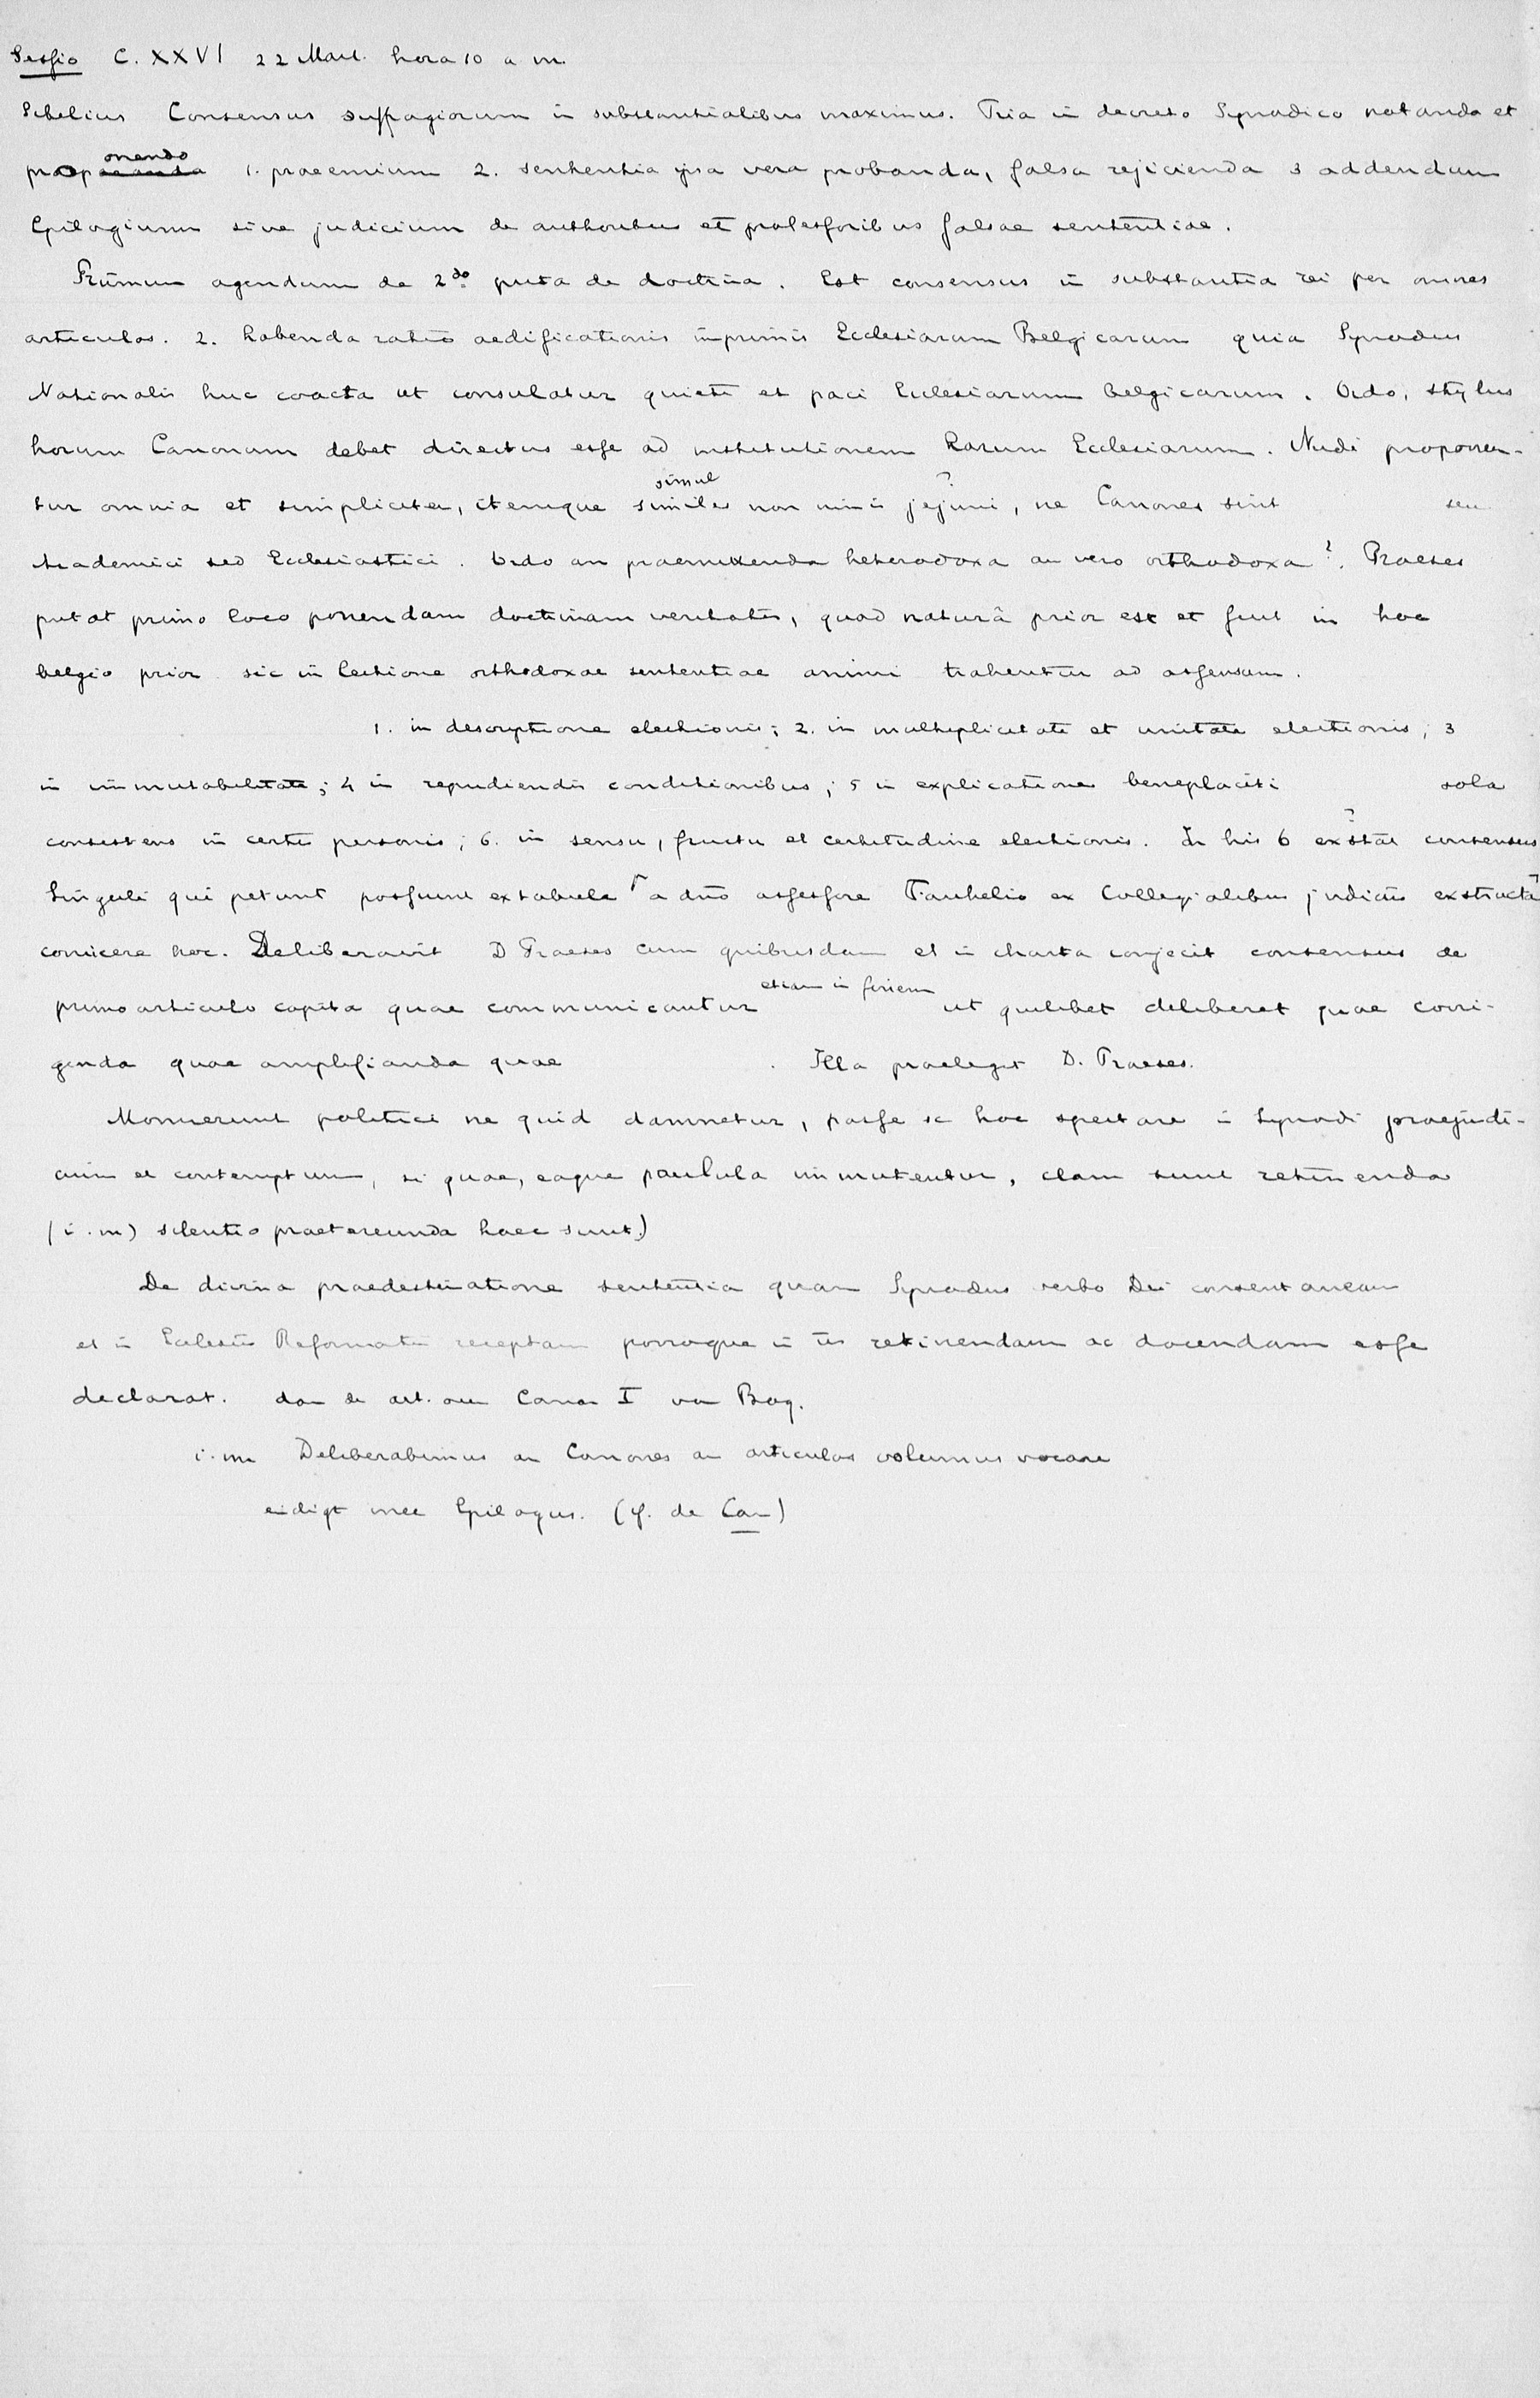 Sessio C. XXVI 22 Mart. hora 10 a m.
Sibelius Consensus suffragiorum in substantialibus maximus. Tria in decreto Synodico notanda et
proponenda 1. praeemium 2. sententia ipsa vera probanda, falsa rejicienda 3 addendum
Epilogium sive judicium de authoribus et professoribus falsae sententiae.
Primum agendum de 2do puta de doctrina. Est consensus in substantia rei per omnes
articulos. 2. habenda ratio aedificationis inprimis Ecclesiarum Belgicarum quia Synodus
Nationalis huc coacta ut consulatur quieti et paci Ecclesiarum belgicarum. Ordo, stylus
horum Canonum debet directus esse ad institutionem harum Ecclesiarum. Nudi proponen-
tur omnia et simpliciter, itemque similes simul non nimis jejuni ?, ne Canones sint seu
Academici sed Ecclesiastici. Ordo an praemittenda heterodoxa an vero orthodoxa?. Praeses
putat primo loco ponendam doctrinam veritatis, quod naturâ prior est et fuit in hoc
belgio prior sic in lectione orthodoxae sententiae animi trahentur ad assensum.
1. in descriptione electionis; 2. in multiplicitate et unitate electionis; 3
in immutabilitate; 4 in repudiendis conditionibus; 5 in explicatione beneplaciti sola
consistens in certis personis; 6. in sensu, fructu et certitudine electionis. In his 6 exstat ? consensus
Singuli qui petunt possunt ex tabula a dno assessore Faukelio ex Collegialibus judiciis exstracta
conicere hoc. Deliberavit D Praeses cum quibusdam et in charta conjecit consensus de
primo articulo capita quae communicantur etiam in seriem ut quilibet deliberet quae corri-
genda quae amplifianda quae . Illa praelegit D. Praeses.
Monuerunt politici ne quid damnetur, posse sc hoc spectare in Synodi praejudi-
cium et contemptum, si quae, eaque paulula immutentur, clam sunt retinenda
(i.m) silentio praetereunda haec sunt.)
De divina praedestinatione sententia quam Synodus verbo Dei consentaneam
et in Ecclesiis Reformatis receptam porroque in iis retinendam ac docendam esse
declarat. dan de art. ou Canon I van Bog.
i.m Deliberabimus an Canones an articulos volumus vocare
eidigt mee Epilogus. (cf. de Can)